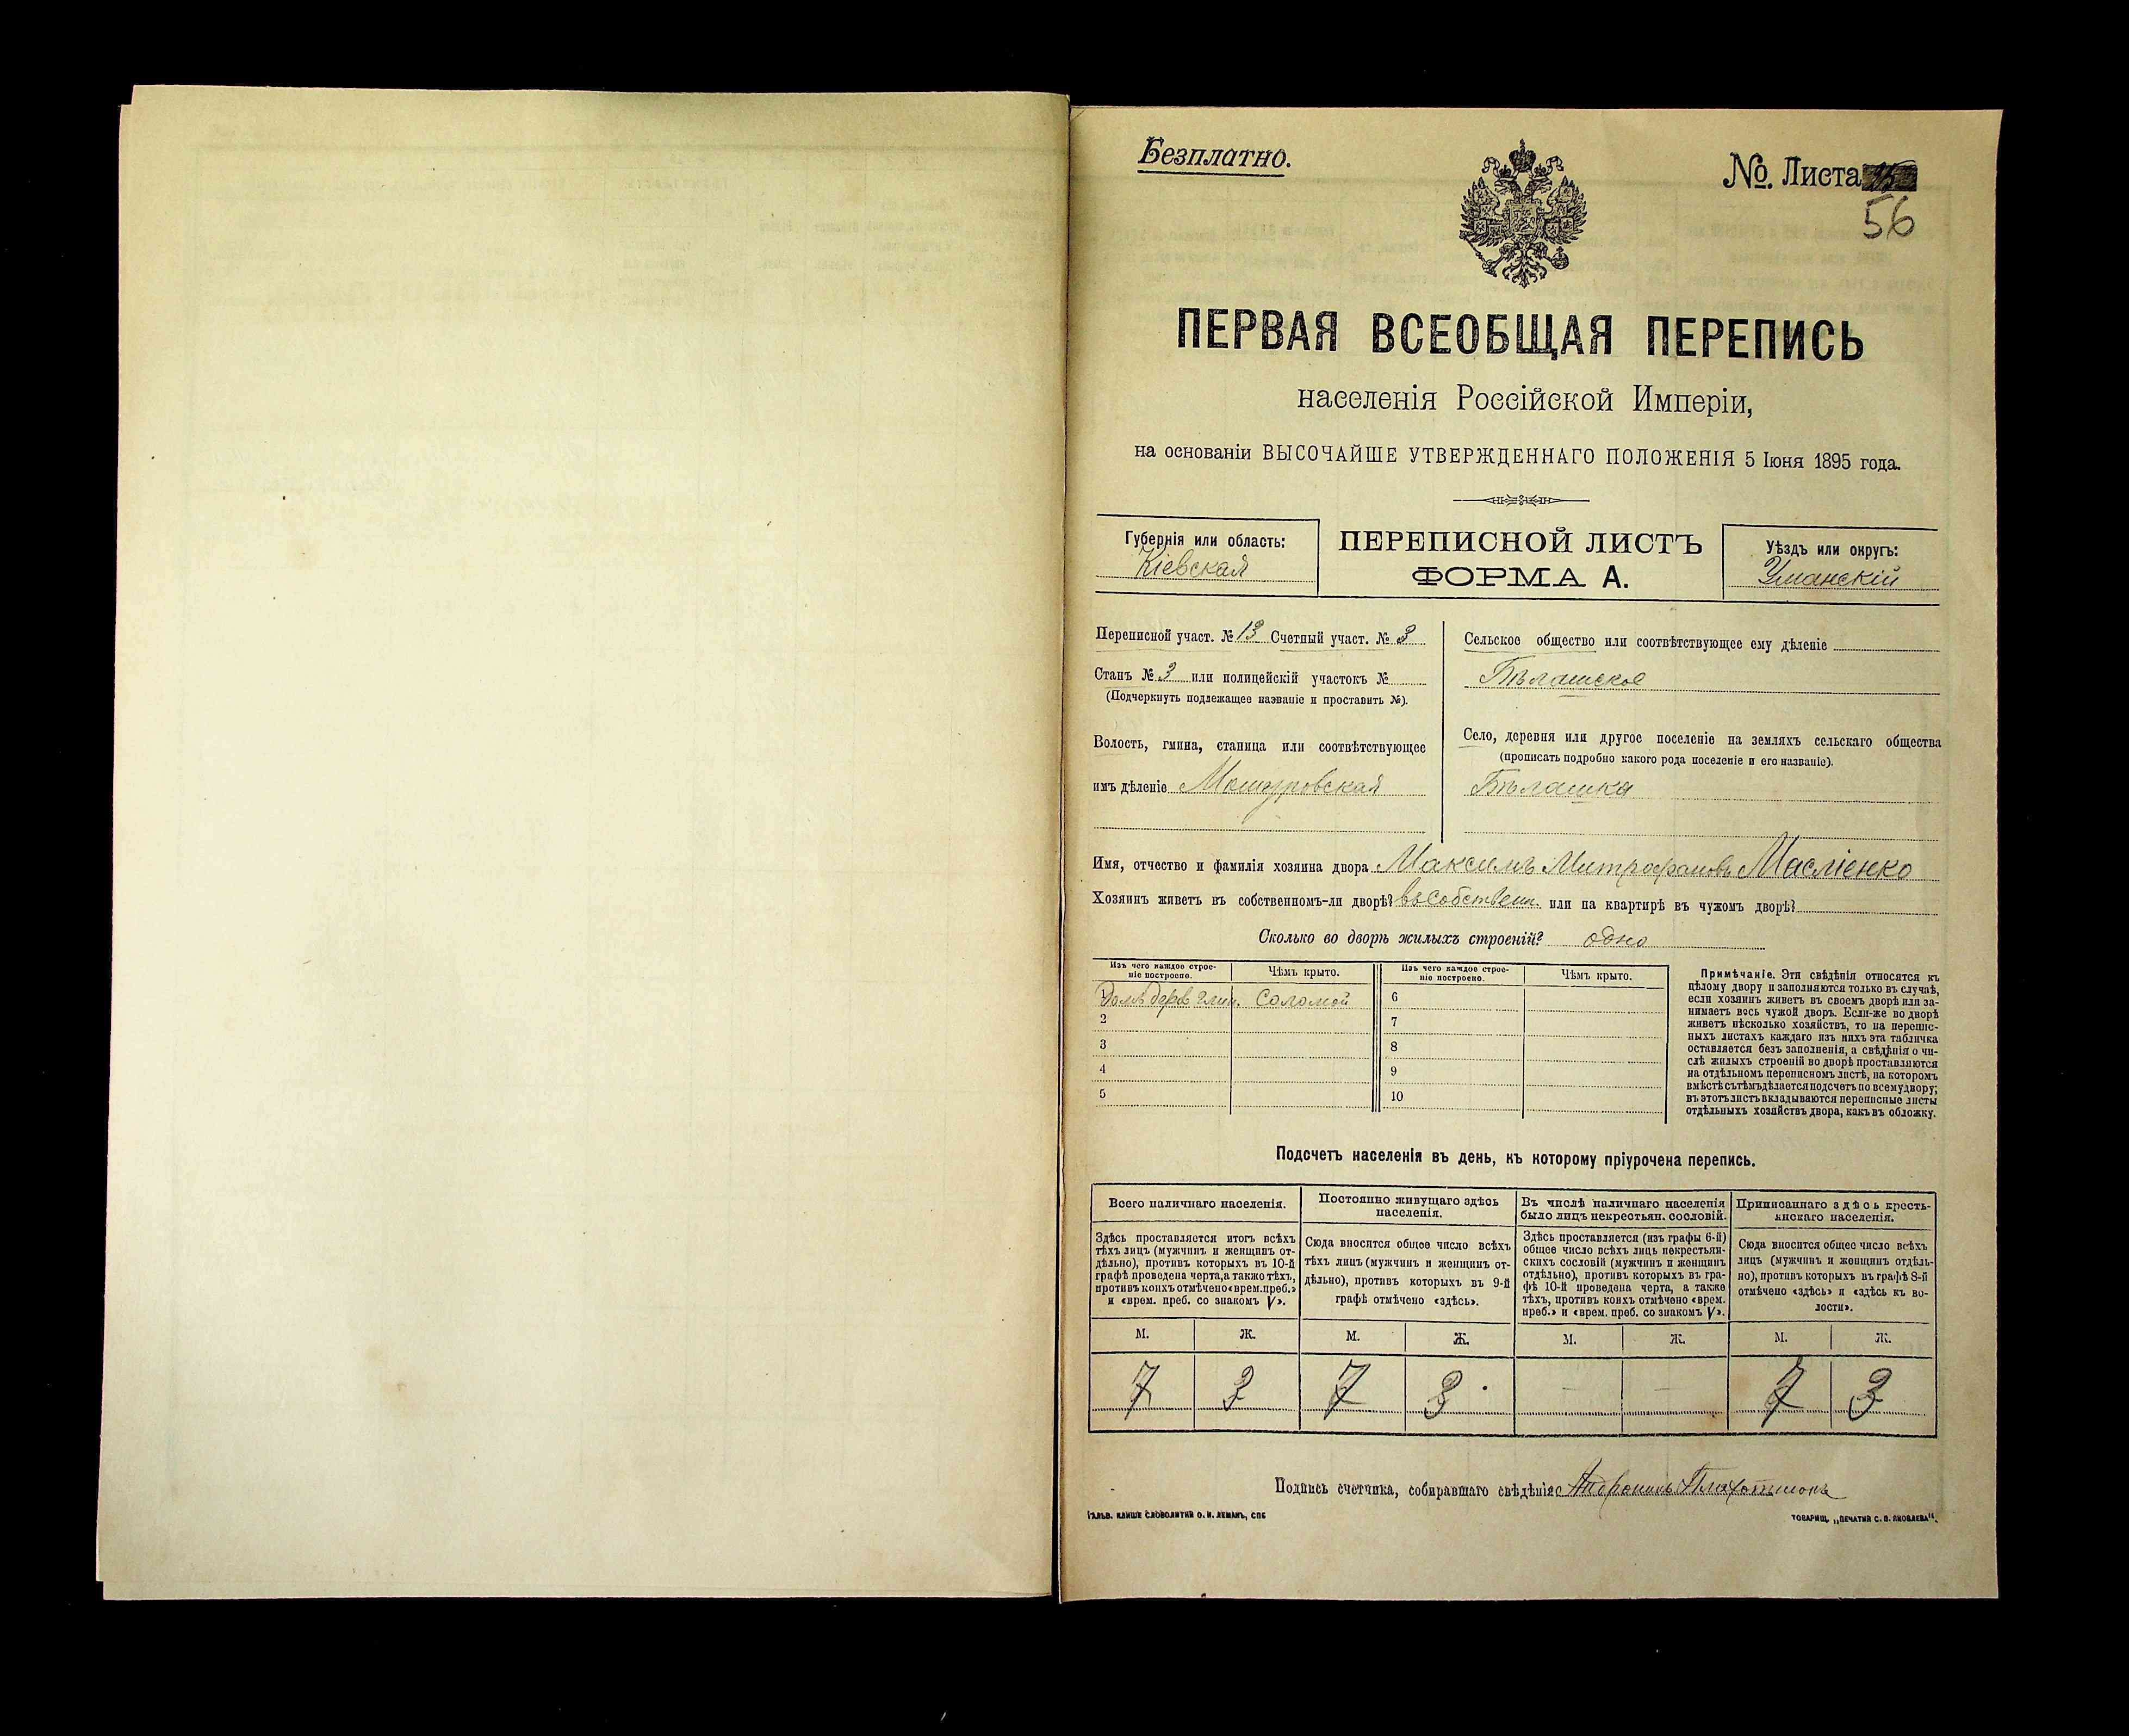 Безплатно.
№. Листа
56
ПЕРВАЯ ВСЕОБЩАЯ ПЕРЕПИСЬ
населенія Россійской Имперіи,
на основаніи ВЫСОЧАЙШЕ УТВЕРЖДЕННАГО ПОЛОЖЕНІЯ 5 Іюня 1895 года.
Губернія или область:
Кіевская
ПЕРЕПИСНОЙ ЛИСТЪ
ФОРМА А.
Уѣздъ или округъ:
Уманскій
Переписной участ. № 13 Счетный участ. № 3
Станъ № 3 или полицейскій участокъ №
(Подчеркнуть подлежащее названіе и проставить №).
Волость, гмина, станица или соотвѣтствующее
имъ дѣленіе Машуровская
Сельское общество или соотвѣтствующее ему дѣленіе
Бѣлашское
Село, деревня или другое поселеніе на земляхъ сельскаго общества
(прописать подробно какого рода поселеніе и его названіе).
Бѣлашка
Имя, отчество и фамилія хозяина двора Максимъ Митрофановъ Маслієнко
Хозяинъ живетъ въ собственномъ-ли дворѣ? въ собственн. или на квартирѣ въ чужомъ дворѣ?
Сколько во дворѣ жилыхъ строеній? одно
Изъ чего каждое строе-
ніе построено.
Чѣмъ крыто.
Изъ чего каждое строе-
ніе построено.
Чѣмъ крыто.
1 Домъ дерев глин. Соломой
2
3
4
5
6
7
8
9
10
Примѣчаніе. Эти свѣдѣнія относятся къ
цѣлому двору и заполняются только въ случаѣ,
если хозяинъ живетъ въ своемъ дворѣ или за-
нимаетъ весь чужой дворъ. Если-же во дворѣ
живетъ нѣсколько хозяйствъ, то на перепис-
ныхъ листахъ каждаго изъ нихъ эта табличка
оставляется безъ заполненія, а свѣдѣнія о чи-
слѣ жилыхъ строеній во дворѣ проставляются
на отдѣльномъ переписномъ листѣ, на которомъ
вмѣстѣ съ тѣмъ дѣлается подсчетъ по всему двору;
въ этотъ листъ вкладываются переписные листы
отдѣльныхъ хозяйствъ двора, какъ въ обложку.
Подсчетъ населенія въ день, къ которому пріурочена перепись.
Всего наличнаго населенія.
Здѣсь проставляется итогъ всѣхъ
тѣхъ лицъ (мужчинъ и женщинъ от-
дѣльно), противъ которыхъ въ 10-й
графѣ проведена черта, а также тѣхъ,
противъ коихъ отмѣчено «врем. преб.»
и «врем. преб. со знакомъ V».
Постоянно живущаго здѣсь
населенія.
Сюда вносится общее число всѣхъ
тѣхъ лицъ (мужчинъ и женщинъ от-
дѣльно), противъ которыхъ въ 9-й
графѣ отмѣчено «здѣсь».
Въ числѣ наличнаго населенія
было лицъ некрестьян. сословій.
Здѣсь проставляется (изъ графы 6-й)
общее число всѣхъ лицъ некрестьян-
скихъ сословій (мужчинъ и женщинъ
отдѣльно), противъ которыхъ въ гра-
фѣ 10-й проведена черта, а также
тѣхъ, противъ коихъ отмѣчено «врем.
преб.» и «врем. преб. со знакомъ V».
Приписаннаго здѣсь кресть-
янскаго населенія.
Сюда вносится общее число всѣхъ
лицъ (мужчинъ и женщинъ отдѣль-
но), противъ которыхъ въ графѣ 8-й
отмѣчено «здѣсь» и «здѣсь къ во-
лости».
М. Ж. М. Ж. М. Ж. М. Ж.
7 3 7 3 — — 7 3
Подпись счетчика, собиравшаго свѣдѣнія:
ГАЛЬВ. КЛИШЕ СЛОВОЛИТНИ О. И. ЛЕМАНЪ, СПБ
ТОВАРИЩ. „ПЕЧАТНЯ С. П. ЯКОВЛЕВА“.